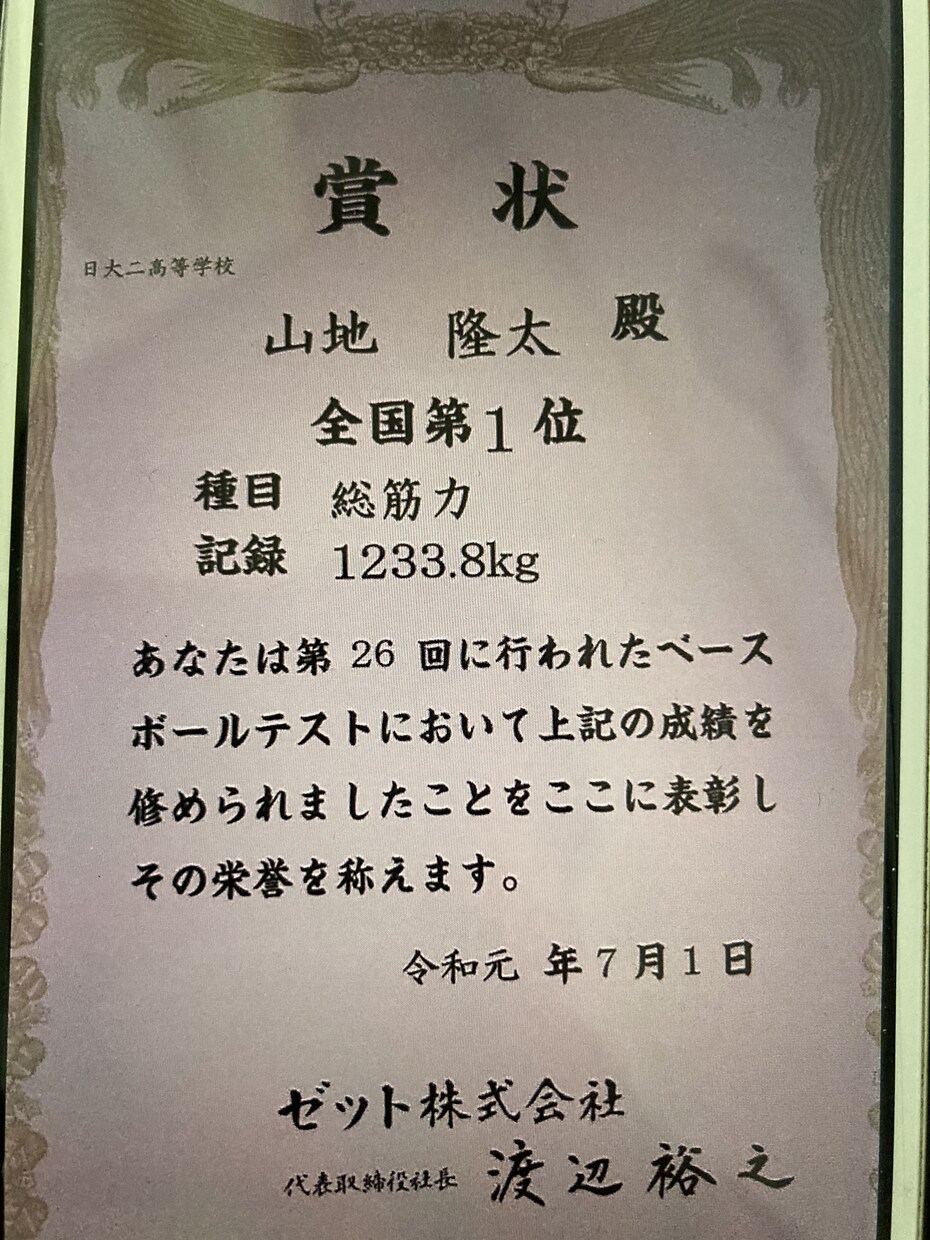 賞 状
日大二高等学校
山地 隆太 殿
全国第1位
種目 総筋力
記録 1233.8kg
あなたは第 26 回に行われたベース
ボールテストにおいて上記の成績を
修められましたことをここに表彰し
その栄誉を称えます。
令和元 年 7 月 1 日
ゼット株式会社
代表取締役社長 渡辺裕之